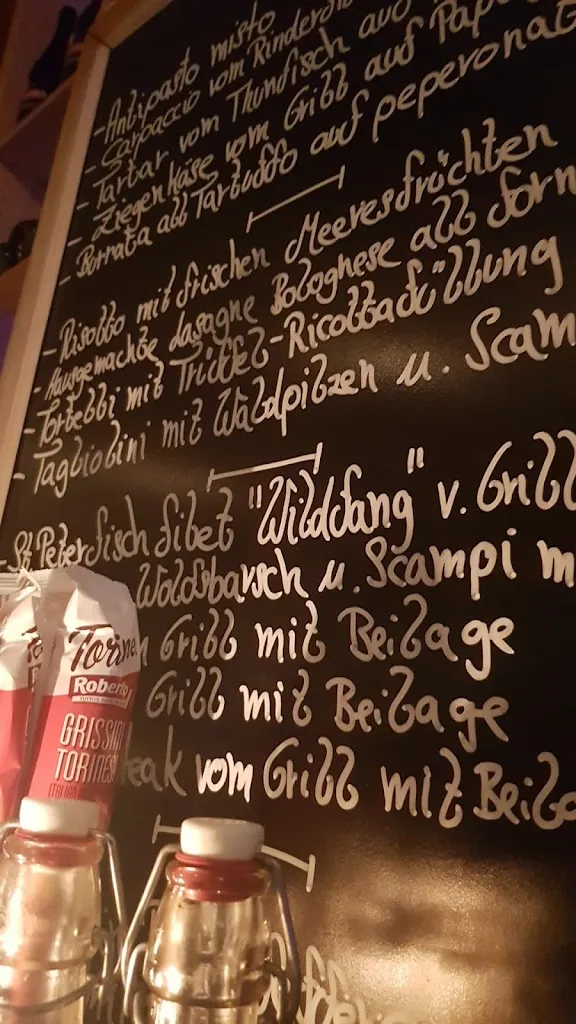 - Antipasto misto
- Carpaccio vom Rinderfil
- Tartar vom Thunfisch auf
- Ziegenkäse vom Grill auf Pap
- Burrata all Tartuffo auf peperonat
- Risotto mit frischen Meeresfrüchten
- Hausgemachte Lasagne Bolognese all forn
- Tortelli mit Trüffel-Ricottafüllung
- Tagliolini mit Waldpilzen u. Scam
- St. Peterfisch filet "Wildfang" v. Grill
Woldsbarsch u. Scampi m
Grill mit Beilage
Grill mit Beilage
eak vom Grill mit Beila
Torine
Roberto
GRISSINI
TORINESI